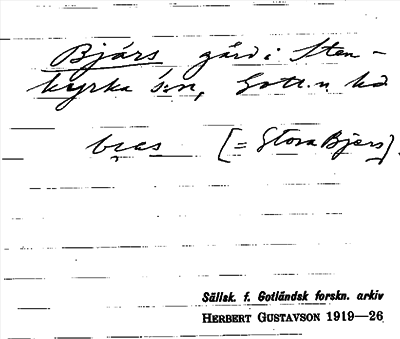 Bjärs gård i Sten-
kyrka s:n, Gotl. n hd
bias [= Stora Bjers].
Sällsk. f. Gotländsk forskn. arkiv
HERBERT GUSTAVSON 1919—26